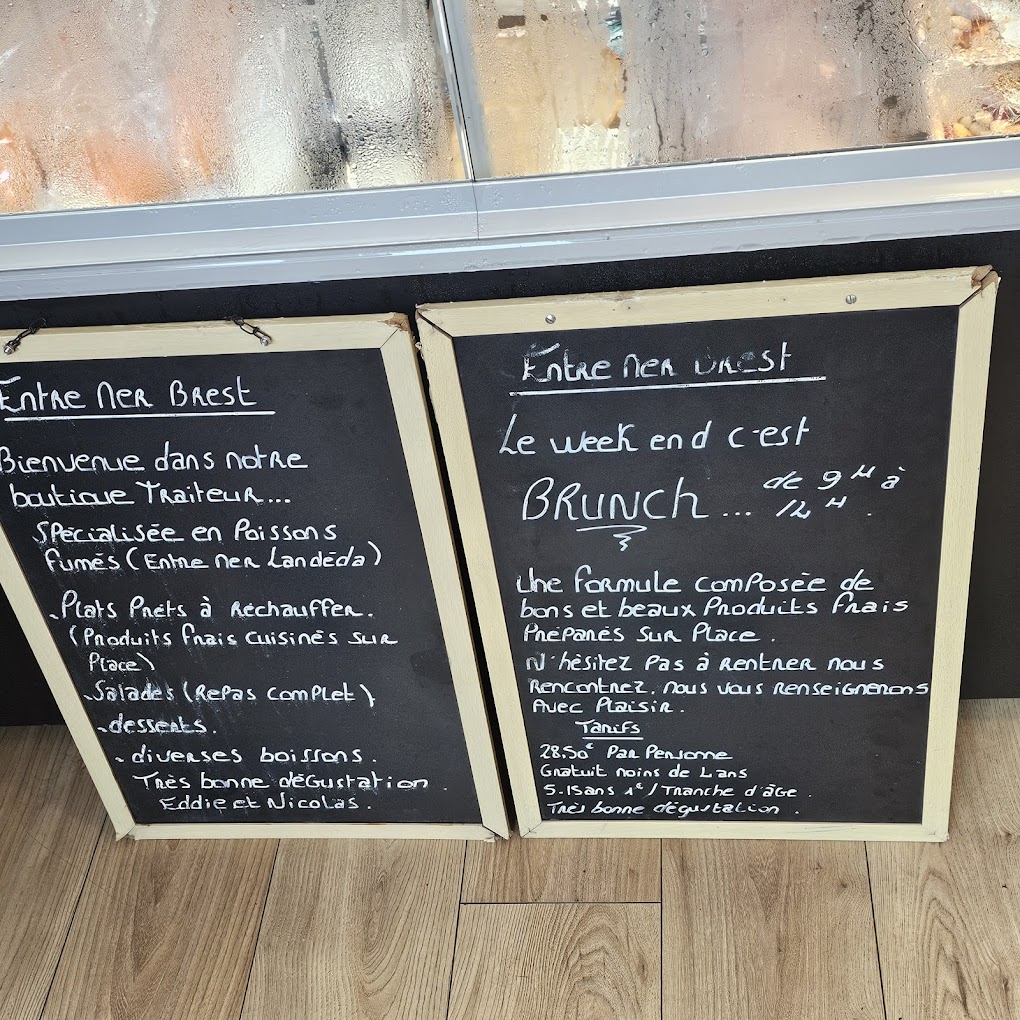 Entre Mer Brest
Bienvenue dans notre
boutique Traiteur...
Spécialisée en Poissons
fumés (Entre Mer Landéda)
- Plats Prêts à Réchauffer.
(Produits frais cuisinés sur
Place)
- Salades (Repas complet)
- desserts.
- diverses boissons.
Très bonne dégustation.
Eddie et Nicolas.
Entre Mer Brest
Le week end c'est
BRUNCH... de 9H à
12H.
Une formule composée de
bons et beaux Produits frais
Préparés sur Place.
N'hésitez pas à rentrer nous
Rencontrez, nous vous renseignerons
Avec Plaisir.
Tarifs
28.50€ Par Personne
Gratuit moins de 4 ans
5-15ans 1€/Tranche d'âge.
Très bonne dégustation.